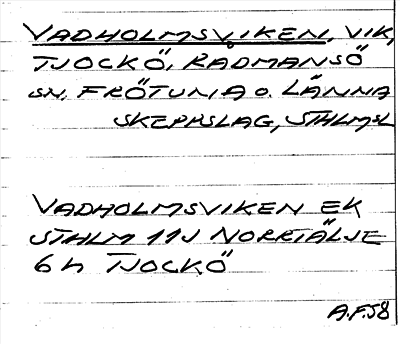 VADHOLMSVIKEN, VIK,
TJOCKÖ, RÅDMANSÖ
SN. FRÖTUNA O. LÄNNA
SKEPPSLAG, STHLMSL
VADHOLMSVIKEN EK
STHLM 11J NORRTÄLJE
6h TJOCKÖ
A.F.58